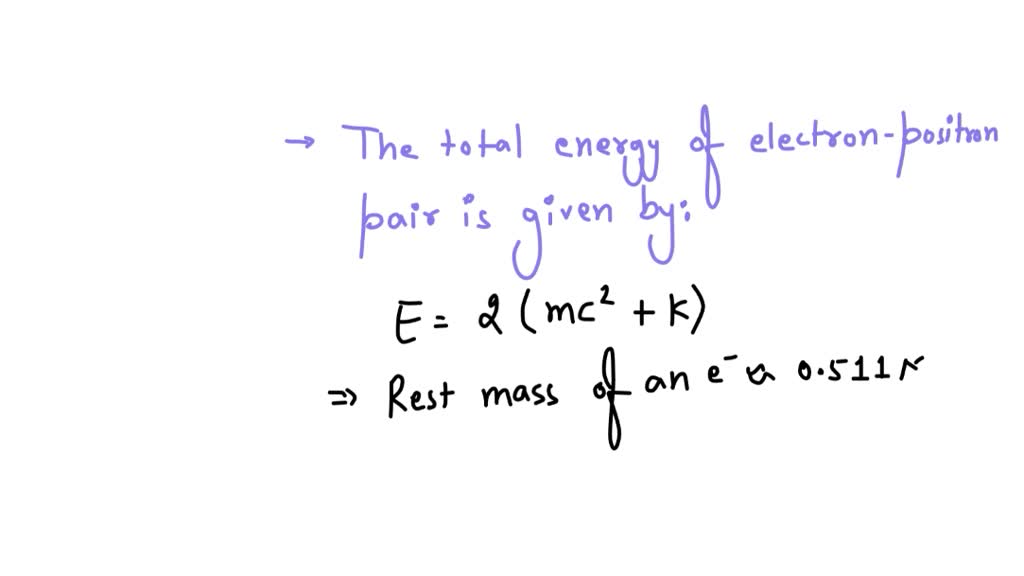 → The total energy of electron-positron
pair is given by:
E = 2 (mc² + K)
⇒ Rest mass of an e⁻ 0.511